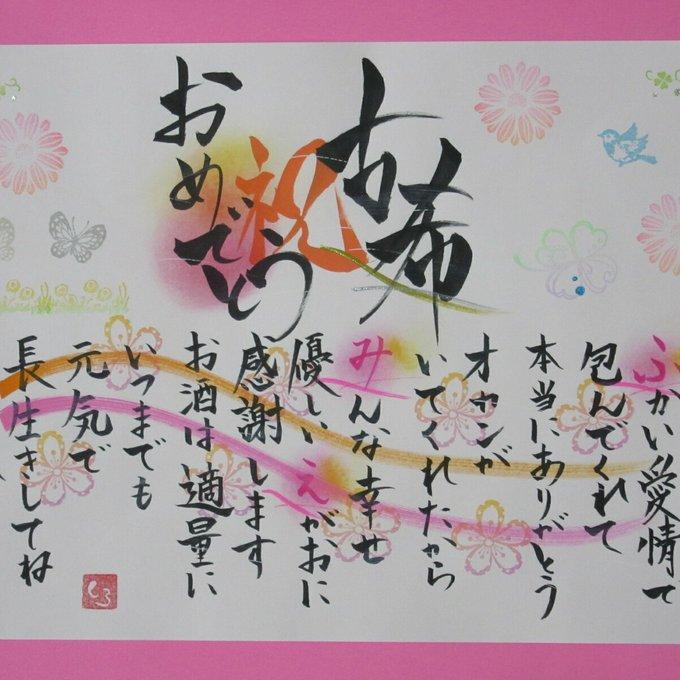 古希
祝
おめでとう
ふかい愛情で
包んでくれて
本当にありがとう
オヤジが
いてくれたから
みんな幸せ
優しいえがおに
感謝します
お酒は適量に
いつまでも
元気で
長生きしてね